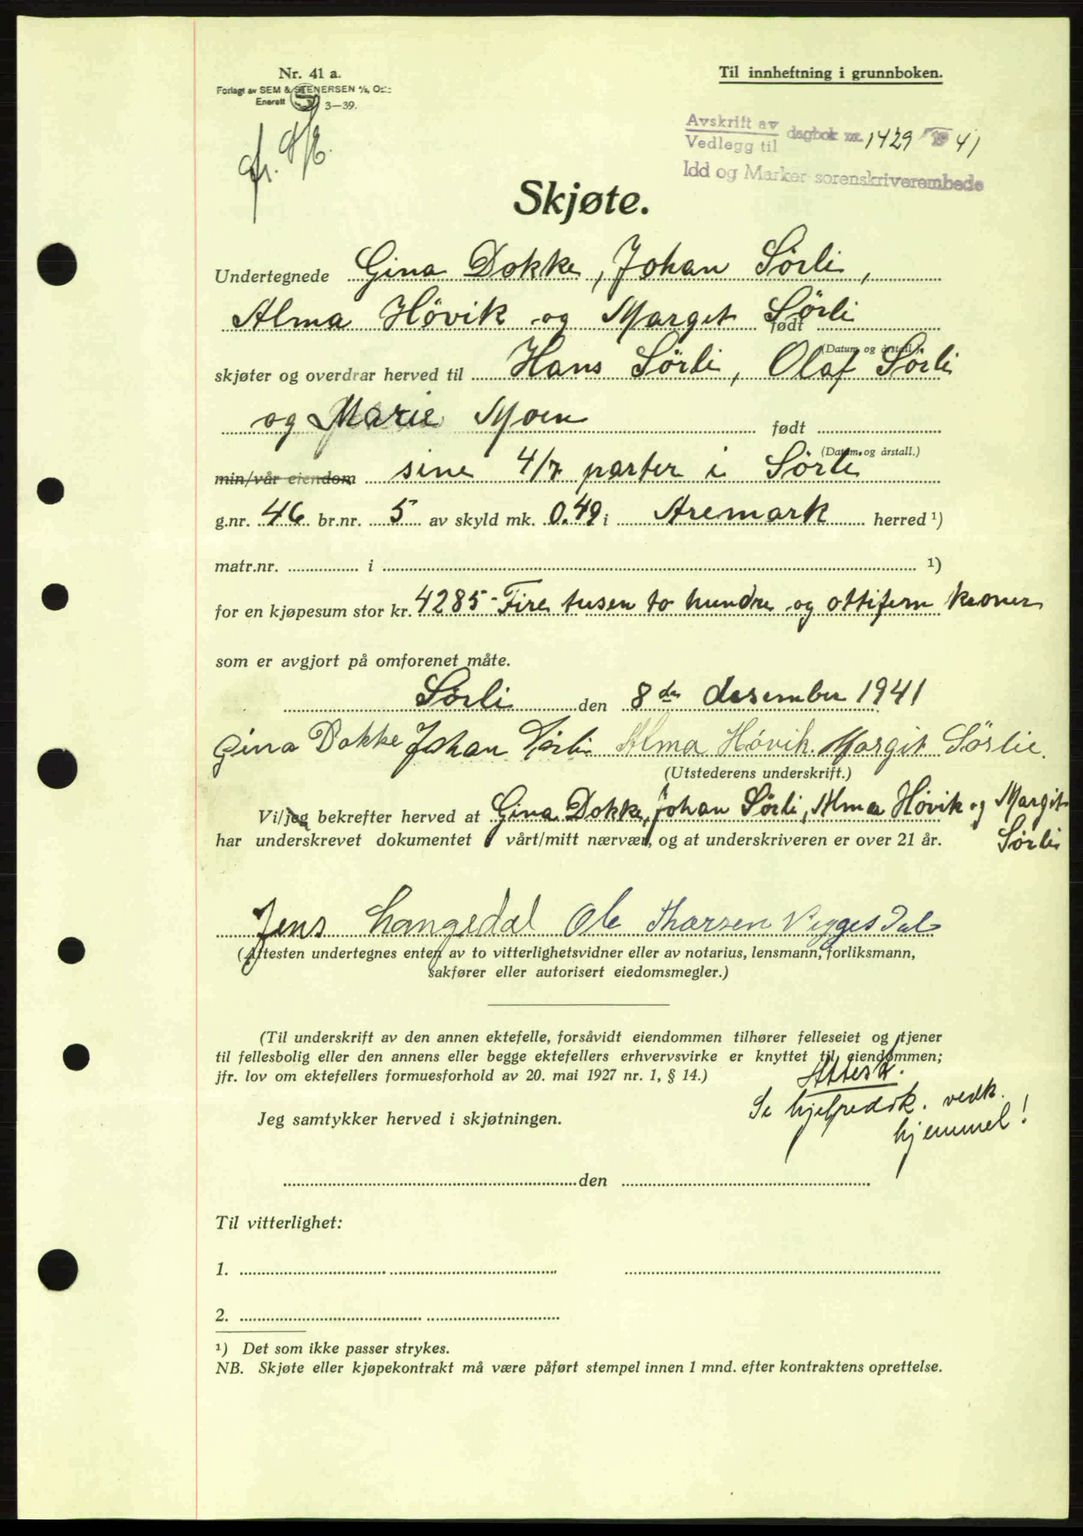 Nr. 41 a.
Forlagt av SEM & STENERSEN A/S, Oslo
Enerett 3—39.
Til innheftning i grunnboken.
Avskrift av
Vedlegg til dagbok nr. 1429 1941
Idd og Marker sorenskriverembede
Skjøte.
Undertegnede Gina Dokke, Johan Sørli,
Alma Høvik og Marget Sørli født
(Datum og årstall.)
skjøter og overdrar herved til Hans Sørli, Olaf Sørli
og Marie Moen født
(Datum og årstall.)
min/vår eiendom sine 4/7 parter i Sørli
g.nr. 46 br.nr. 5 av skyld mk. 0.49 i Aremark herred ¹)
matr.nr. i ¹)
for en kjøpesum stor kr. 4285- Fire tusen to hundre og ottifem kroner
som er avgjort på omforenet måte.
Sørli den 8de desember 1941
Gina Dokke Johan Sørli Alma Høvik. Margit Sørlie.
(Utstederens underskrift.)
Vi/jeg bekrefter herved at Gina Dokke, Johan Sørli, Alma Høvik og Margit
Sørli
har underskrevet dokumentet i vårt/mitt nærvær, og at underskriveren er over 21 år.
Jens Langedal Ole Thorsen Viggesdal
(Attesten undertegnes enten av to vitterlighetsvidner eller av notarius, lensmann, forliksmann,
sakfører eller autorisert eiedomsmegler.)
(Til underskrift av den annen ektefelle, forsåvidt eiendommen tilhører felleseiet og tjener
til fellesbolig eller den annens eller begge ektefellers erhvervsvirke er knyttet til eiendommen;
jfr. lov om ektefellers formuesforhold av 20. mai 1927 nr. 1, § 14.)
Attest.
Se hjelpedok. vedk.
hjemmel!
Jeg samtykker herved i skjøtningen.
den
Til vitterlighet:
1.
2.
¹) Det som ikke passer strykes.
NB. Skjøte eller kjøpekontrakt må være påført stempel innen 1 mnd. efter kontraktens oprettelse.